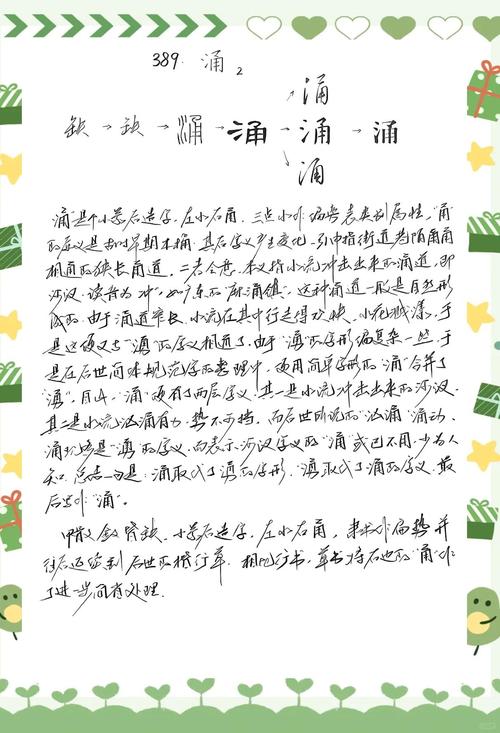 389. 涌 2
涌
缺→缺→涌→涌→涌→涌
涌
涌是个小篆后造字，左水右甬，三点水作偏旁表类别属性，"甬"
的原义是 早期木桶，其后字义产生变化，引申指街道两旁有甬
相通的狭长甬道，二者合意，本义指水流冲击出来的涌道，即
河汊，读音为"冲"，如广东的"麻涌镇"，这种甬道一般是自然形
成的，由于涌道窄长，水流在其中行走得欢快，水花溅漾，于
是这便又与"湧"的字义相通了，由于"湧"的字形偏复杂一些，于
是在后世简体规范字的整理中，便用简单字形的"涌"合并了
"湧"，自此，"涌"便有了两层字义，其一是水流冲击出来的河汊，
其二是水流汹涌有力，势不可挡，而后世所说的"汹涌""涌动"、
涌现 是"湧"的字义，而表示河汊字义的"涌"或已不用，少为人
知，总之一句是：涌取代了湧的字形，湧取代了涌的字义，最
后写作"涌"。
甲骨、金文暂缺，小篆后造字，左水右甬，隶书作扁势并
往后延续到后世的楷行草，相比行书，草书将右边的"甬"作
了进一步简省处理.